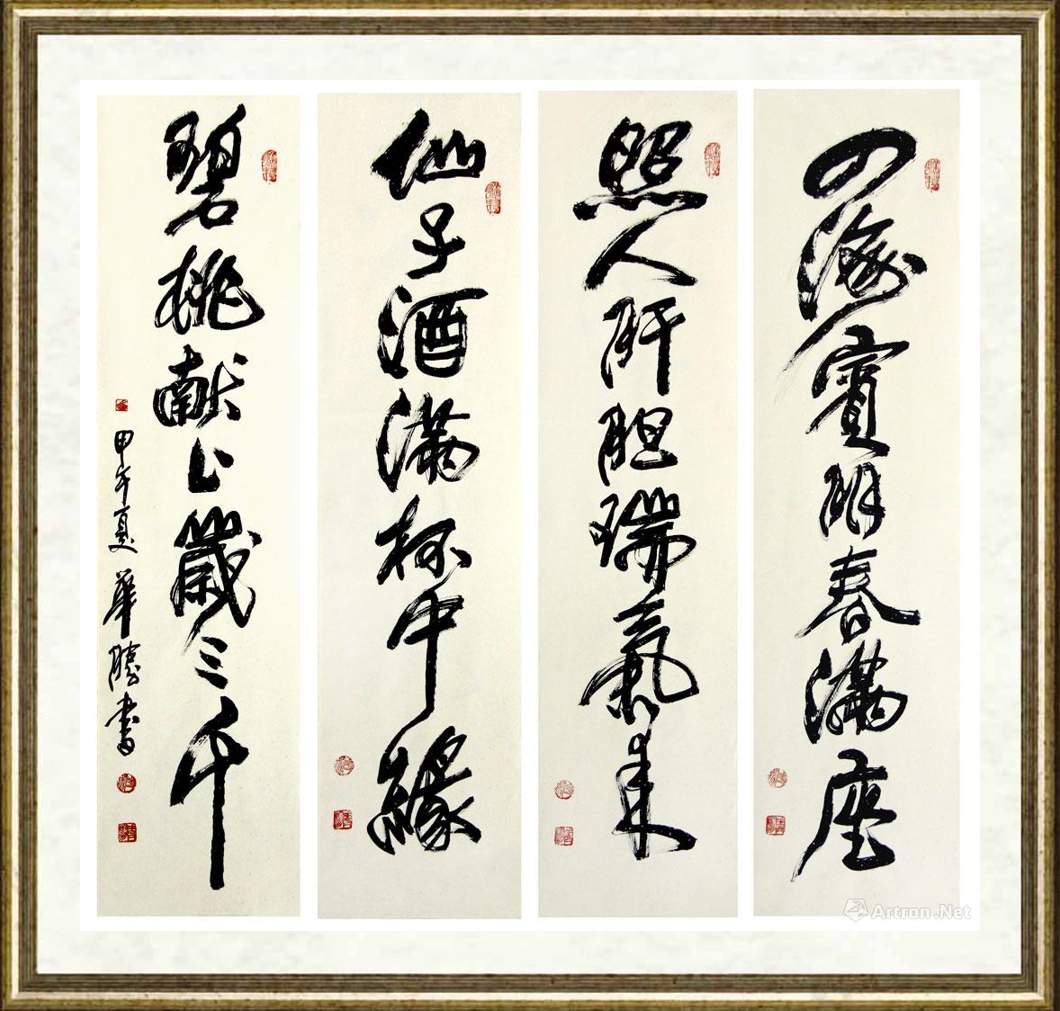 四海賓朋春滿座
照人肝胆瑞氣来
仙子酒满杯中緣
碧桃献上歲三千
甲午夏 華勝書
Artron.Net